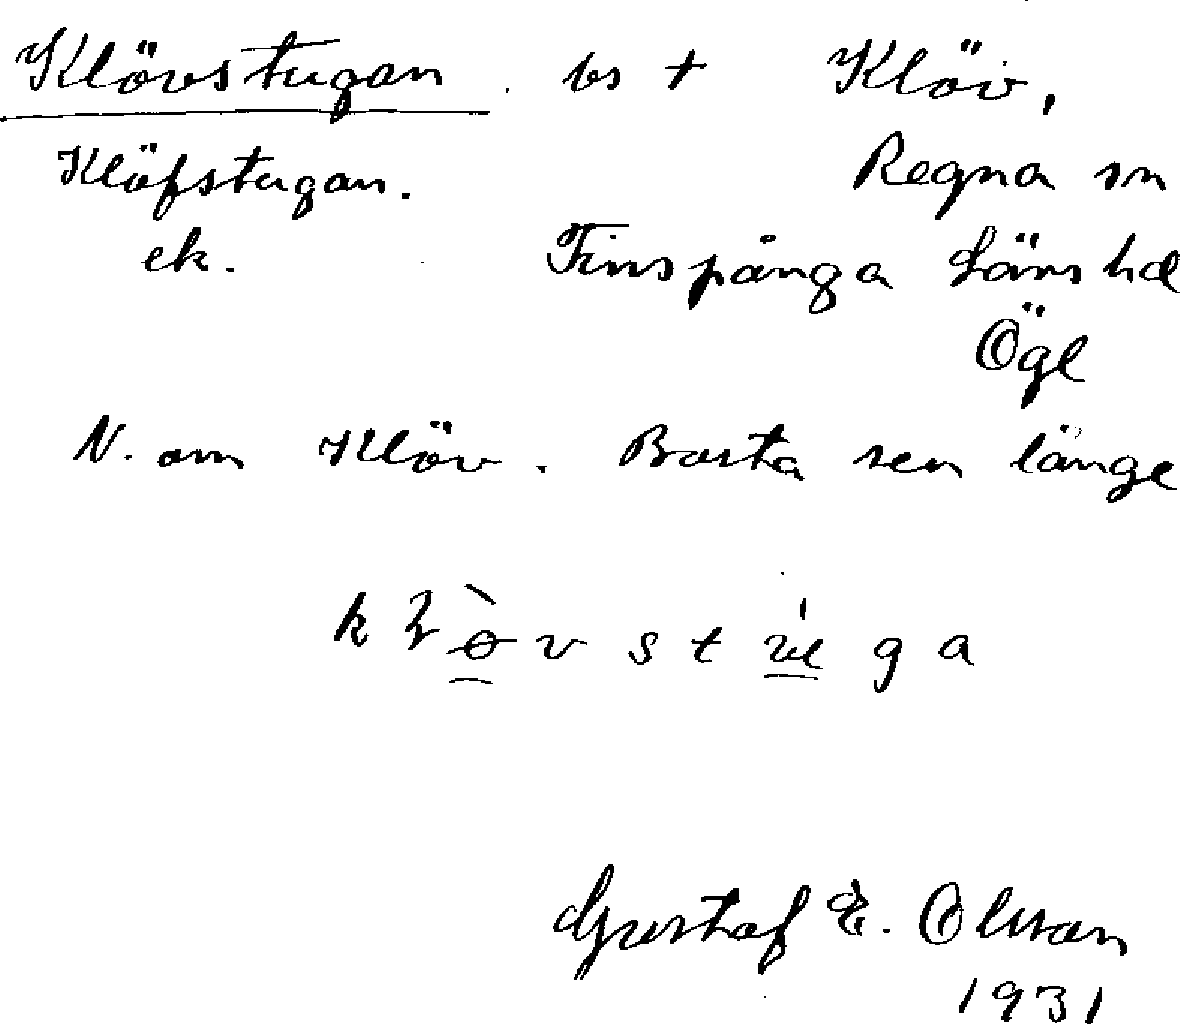 Klövstugan bs + Klöv,
Klöfstugan. Regna sn
ek. Finspånga Läns hd
Ögl
N. om Klöv. Borta sen länge
Gustaf E. Olsson
1931